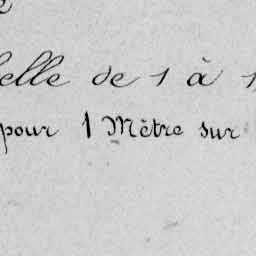 elle de 1 à 1
pour 1 Mètre sur